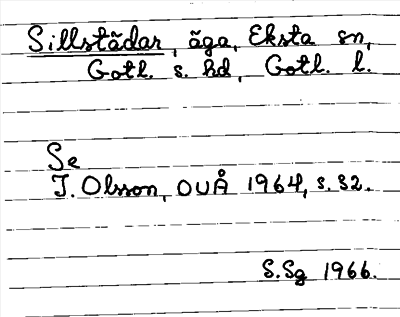 Sillstädar, äga, Eksta sn,
Gotl. s. hd, Gotl. l.
Se
I. Olsson, OUÅ 1964, s. 32.
S.Sg 1966.